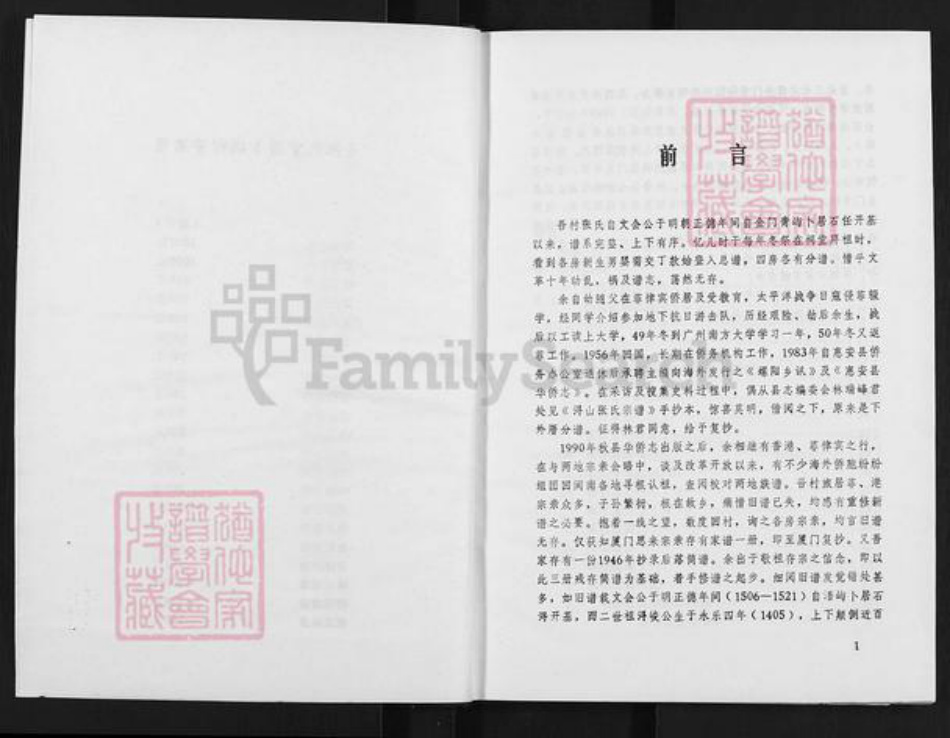 前言
吾村张氏自文会公于明朝正德年间自金门青屿卜居石任开基
以来，谱系完整、上下有序。忆儿时于每年冬祭在祠堂拜祖时，
看到各房新生男婴需交丁款始登入总谱，四房各有分谱。惜乎文
革十年动乱，祸及谱志，荡然无存。
余自幼随父在菲律宾侨居及受教育，太平洋战争日寇侵菲辍
学，经同学介绍参加地下抗日游击队，历经艰险、劫后余生，战
后以工读上大学，49年冬到广州南方大学学习一年，50年冬又返
菲工作。1956年回国，长期在侨务机构工作，1983年自惠安县侨
务办公室退休后承聘主编向海外发行之《螺阳乡讯》及《惠安县
华侨志》。在采访及搜集史料过程中，偶从县志编委会林瑞峰君
处见《浔山张氏宗谱》手抄本，惊喜莫明，借阅之下，原来是下
外厝分谱。征得林君同意，给予复抄。
1990年秋县华侨志出版之后，余相继有香港、菲律宾之行，
在与两地宗亲会晤中，谈及改革开放以来，有不少海外侨胞纷纷
组团回闽南各地寻根认祖，查阅校对两地族谱。吾村旅居菲、港
宗亲众多，子孙繁衍，根在故乡，痛惜旧谱已失，均感有重修新
谱之必要。抱着一线之望，数度回村，询之各房宗亲，均言旧谱
无存。仅获知厦门思来宗亲存有家谱一册，即至厦门复抄。又吾
家存有一份1946年抄录后落简谱。余出于敬祖存宗之信念，即以
此三册残存简谱为基础，着手修谱之起步。细阅旧谱发觉错处甚
多，如旧谱载文会公于明正德年间（1506—1521）自浯屿卜居石
浔开基，而二世祖浔峻公生于永乐四年（1405），上下颠倒近百
1
猶他家
譜學會
收藏
猶他家
譜學會
收藏
FamilySearch